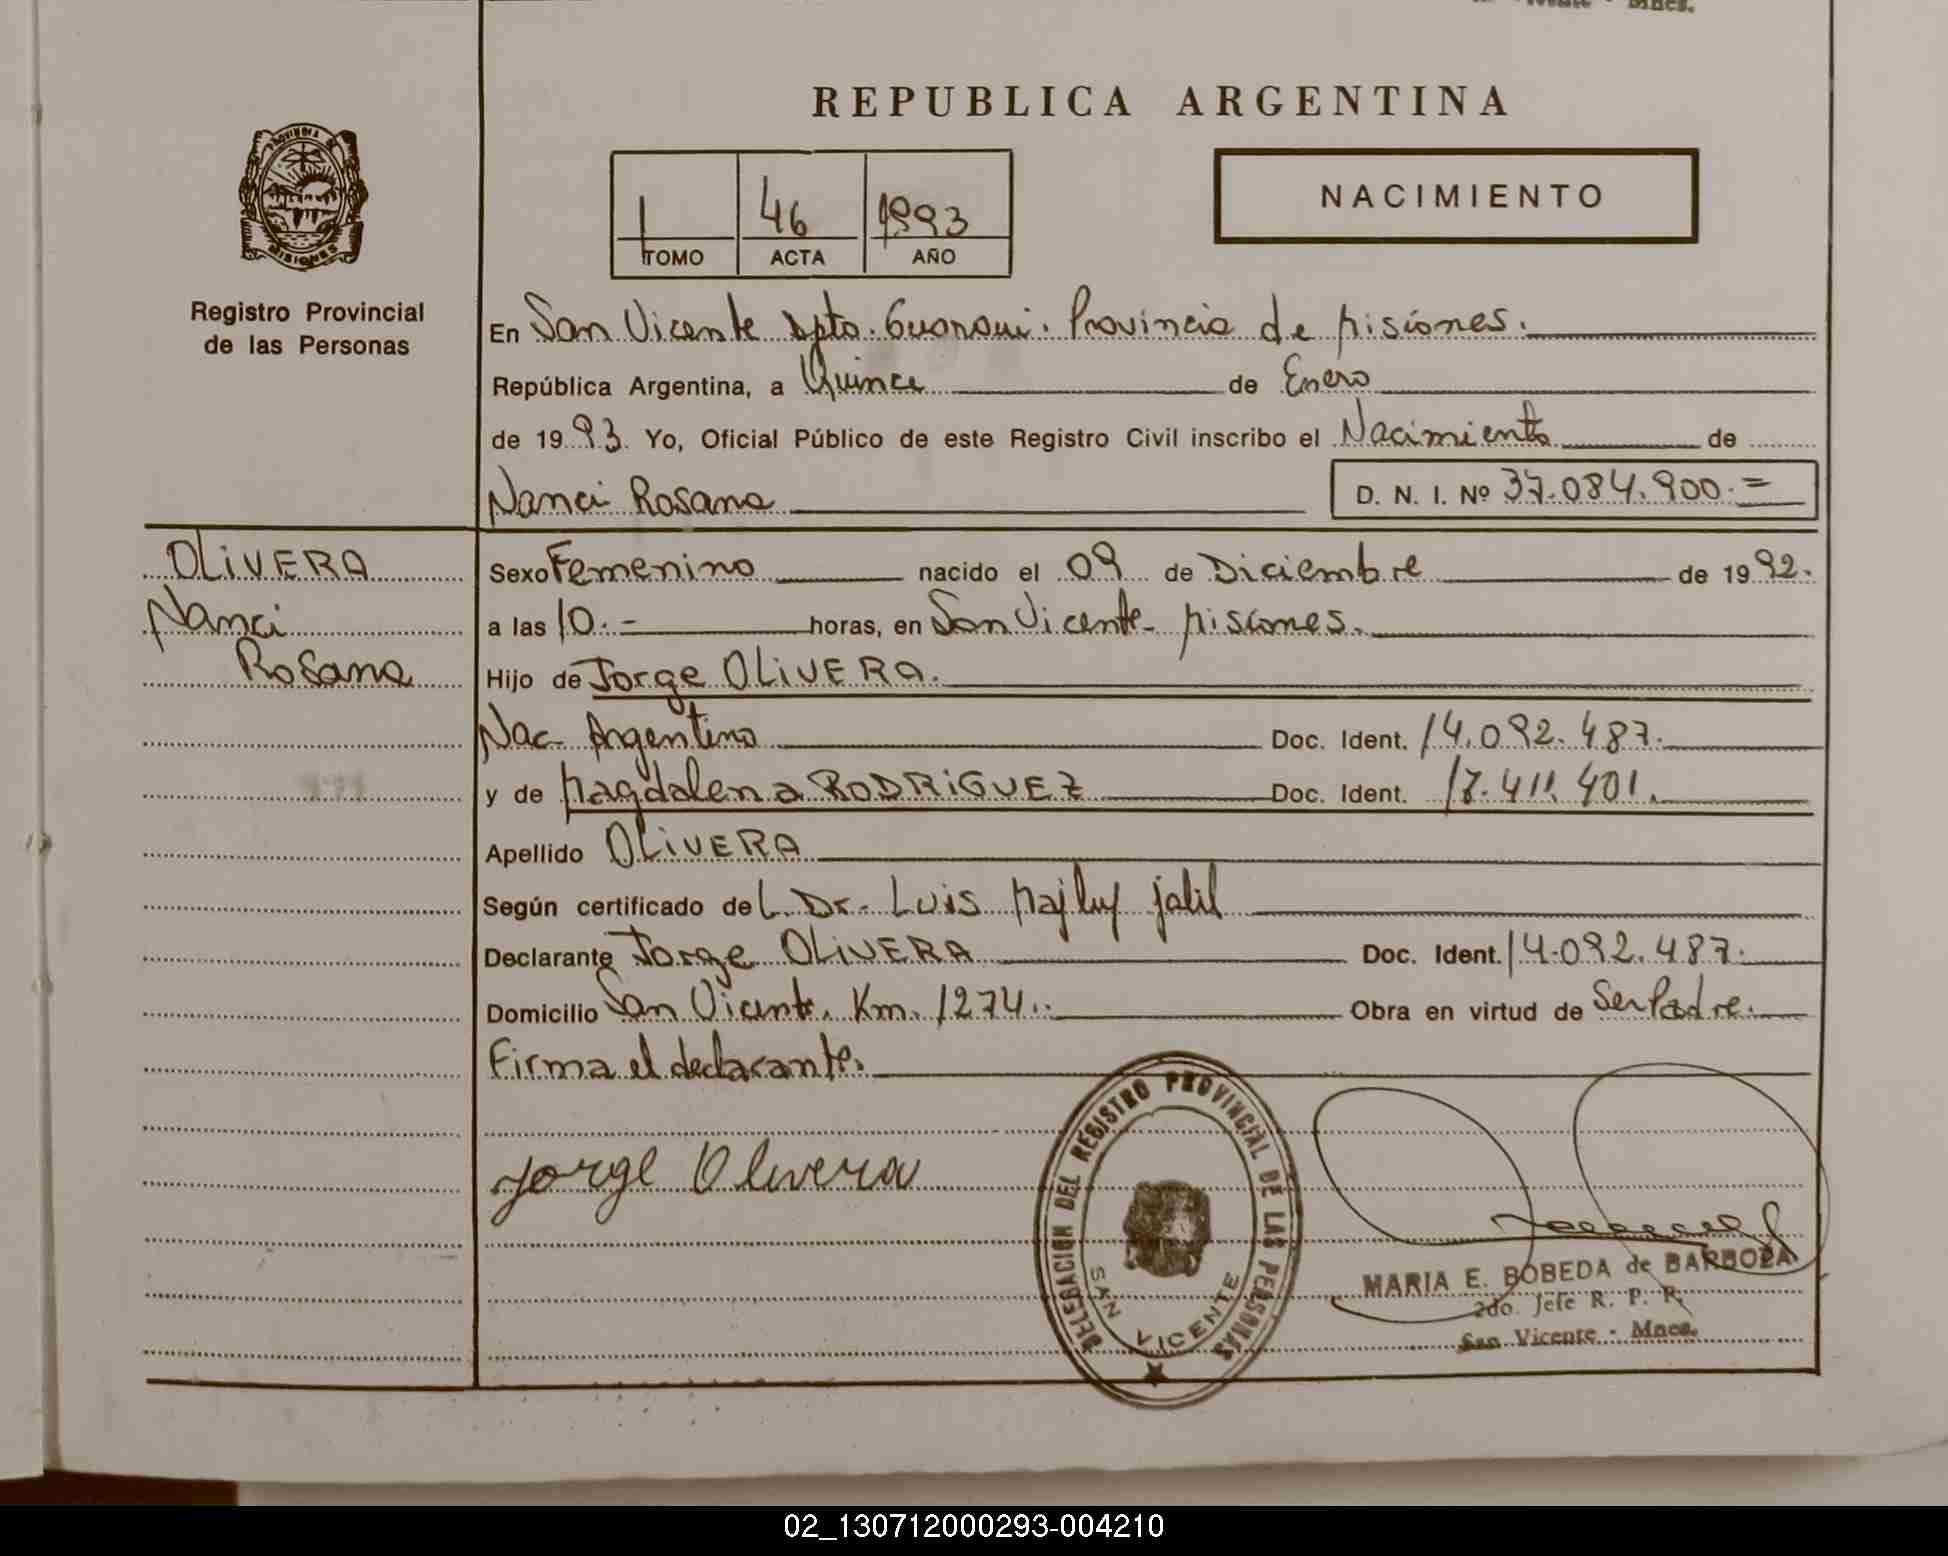 REPUBLICA ARGENTINA
PROVINCIA DE
MISIONES
Registro Provincial
de las Personas
I 46 1993
TOMO ACTA AÑO
NACIMIENTO
En San Vicente Dpto. Guarani. Provincia de Misiones.
República Argentina, a Quince de Enero
de 1993. Yo, Oficial Público de este Registro Civil inscribo el Nacimiento de
Nanci Rosana D. N. I. Nº 37.084.900.=
OLiVERA
Nanci
Rosana
Sexo Femenino nacido el 09 de Diciembre de 1992.
a las 10.- horas, en San Vicente- Misiones.
Hijo de Jorge OLiVERA.
Nac. Argentino Doc. Ident. 14.092.487.
y de Magdalena RODRiGUEZ Doc. Ident. 17.411.401.
Apellido OLiVERA
Según certificado de L. Dr. Luis Majluf Jalil
Declarante Jorge OLiVERA Doc. Ident. 14.092.487.
Domicilio San Vicente. Km. 1274.. Obra en virtud de Ser Padre.
Firma el declarante.
Jorge Olivera
DELEGACION DEL REGISTRO PROVINCIAL DE LAS PERSONAS
SAN VICENTE
MARIA E. BOBEDA de BARBOZA
2do. Jefe R. P. P.
San Vicente - Mnes.
02_130712000293-004210